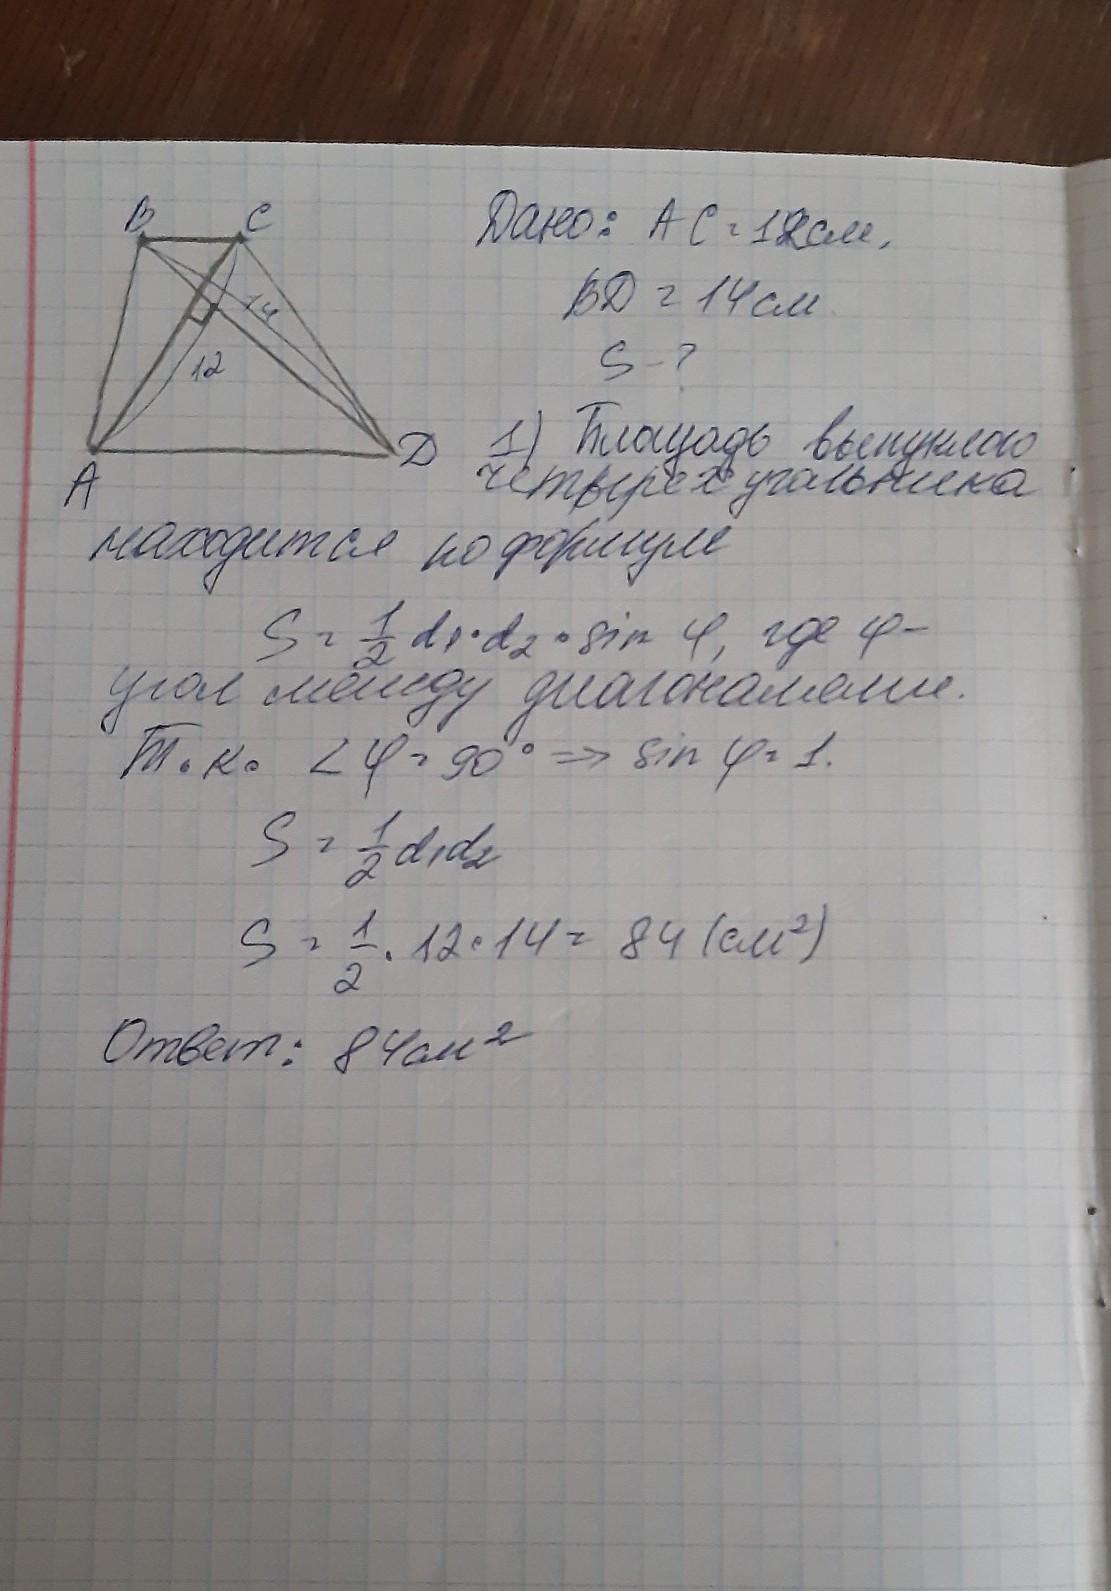 B C
Дано: AC = 12 см,
14
BD = 14 см
12
S - ?
A D
1) Площадь выпуклого
четырехугольника
находится по формуле
S = 1/2 d₁ · d₂ · sin φ, где φ -
угол между диагоналями.
Т.к. ∠φ = 90° => sin φ = 1.
S = 1/2 d₁d₂
S = 1/2 · 12 · 14 = 84 (см²)
Ответ: 84 см²